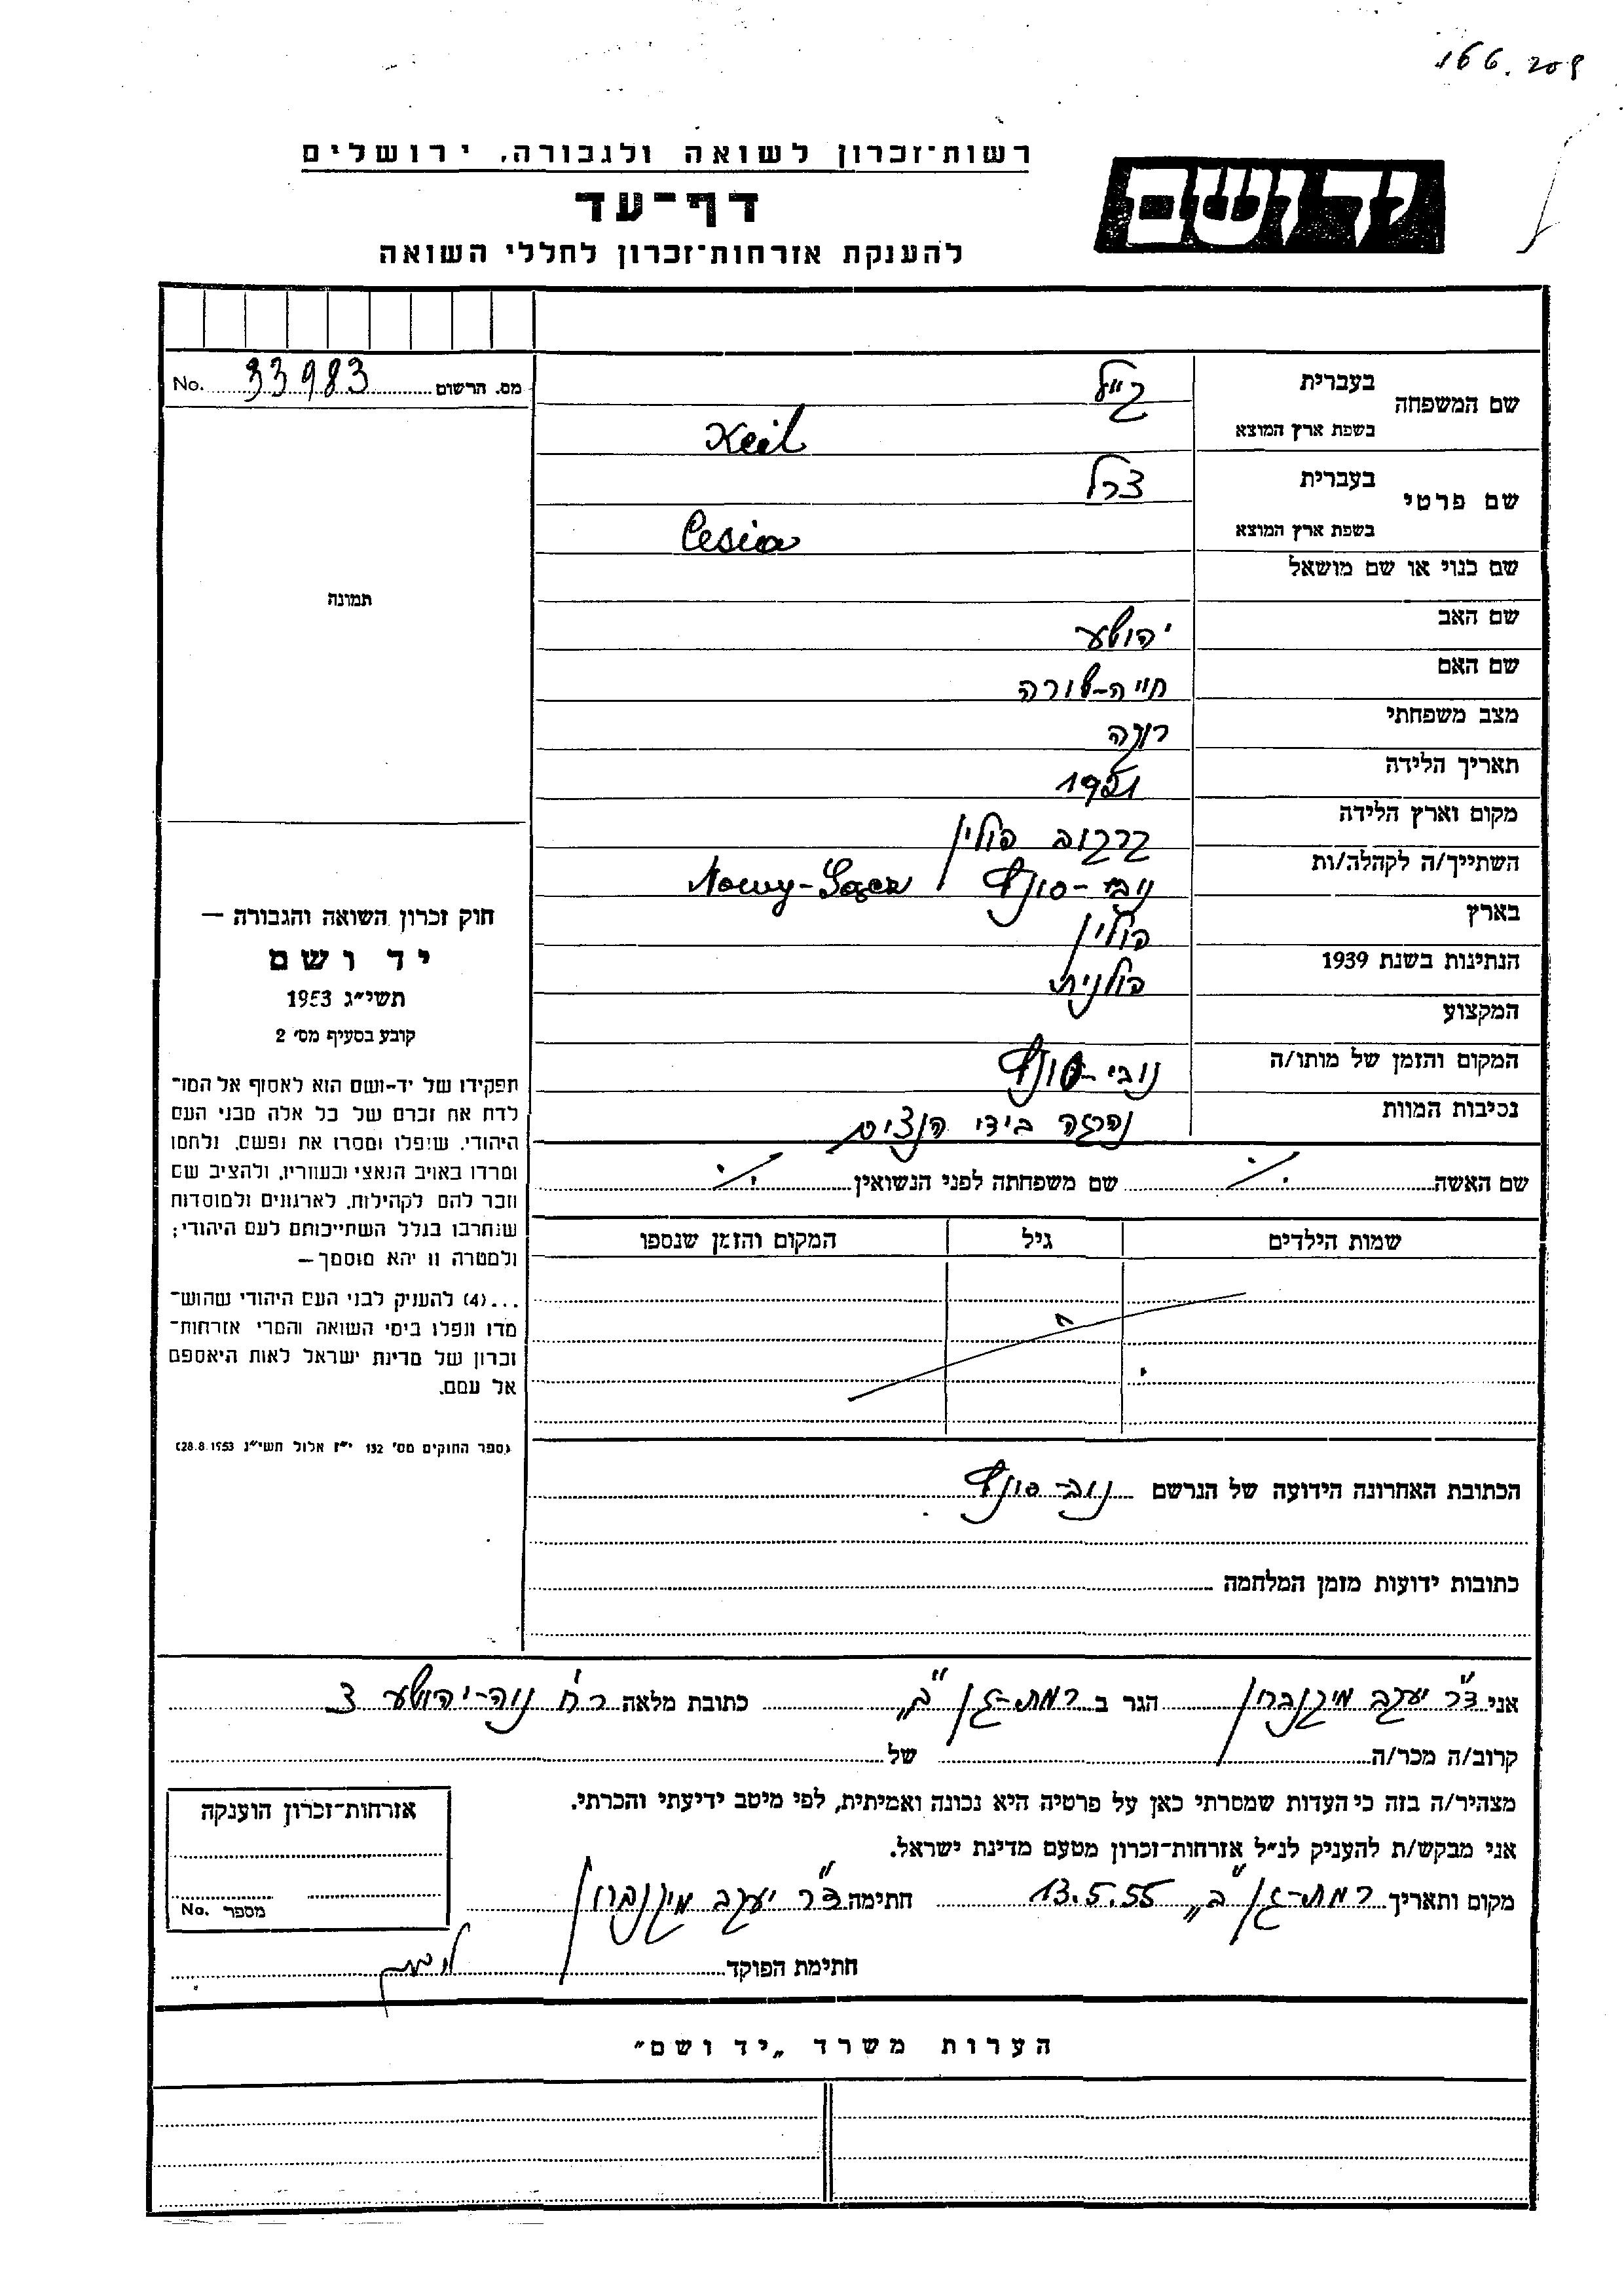 166.209
רשות־זכרון לשואה ולגבורה, ירושלים
יד ושם
דף־עד
להענקת אזרחות־זכרון לחללי השואה
מס. הרשום 33983 No.
שם המשפחה בעברית קייל
בשפת ארץ המוצא Keil
שם פרטי בעברית צרל
בשפת ארץ המוצא Cesia
שם כנוי או שם מושאל
תמונה
שם האב יהושע
שם האם חייה-שורה
מצב משפחתי רווקה
תאריך הלידה 1921
מקום וארץ הלידה קרקוב פולין
השתייך/ה לקהלה/ות נובי-סונץ Nowy-Sącz
בארץ פולין
הנתינות בשנת 1939 פולנית
המקצוע
המקום והזמן של מותו/ה נובי-סונץ
נסיבות המוות נהרגה בידי הנצים
שם האשה ./. שם משפחתה לפני הנשואין ./.
שמות הילדים גיל המקום והזמן שנספו
הכתובת האחרונה הידועה של הנרשם נובי-סונץ
כתובות ידועות מזמן המלחמה
חוק זכרון השואה והגבורה —
יד ושם
תשי״ג 1953
קובע בסעיף מס׳ 2
תפקידו של יד-ושם הוא לאסוף אל המו־
לדת את זכרם של כל אלה מבני העם
היהודי, שנפלו ומסרו את נפשם, נלחמו
ומרדו באויב הנאצי ובעוזריו, ולהציב שם
וזכר להם לקהילות, לארגונים ולמוסדות
שנחרבו בגלל השתייכותם לעם היהודי;
ולמטרה זו יהא מוסמך —
...(4) להעניק לבני העם היהודי שהוש־
מדו ונפלו בימי השואה והמרי אזרחות־
זכרון של מדינת ישראל לאות היאספם
אל עמם.
(ספר החוקים מס׳ 132 י״ז אלול תשי״ג 28.8.1953)
אני ד״ר יעקב מילגרום הגר ב רמת-גן „ב״ כתובת מלאה רח׳ נוה-יהושע 3
קרוב/ה מכר/ה של
מצהיר/ה בזה כי העדות שמסרתי כאן על פרטיה היא נכונה ואמיתית, לפי מיטב ידיעתי והכרתי.
אני מבקש/ת להעניק לנ״ל אזרחות־זכרון מטעם מדינת ישראל.
מקום ותאריך רמת-גן „ב״ 13.5.55 חתימה ד״ר יעקב
חתימת הפוקד
אזרחות־זכרון הוענקה
מספר No.
הערות משרד „יד ושם״